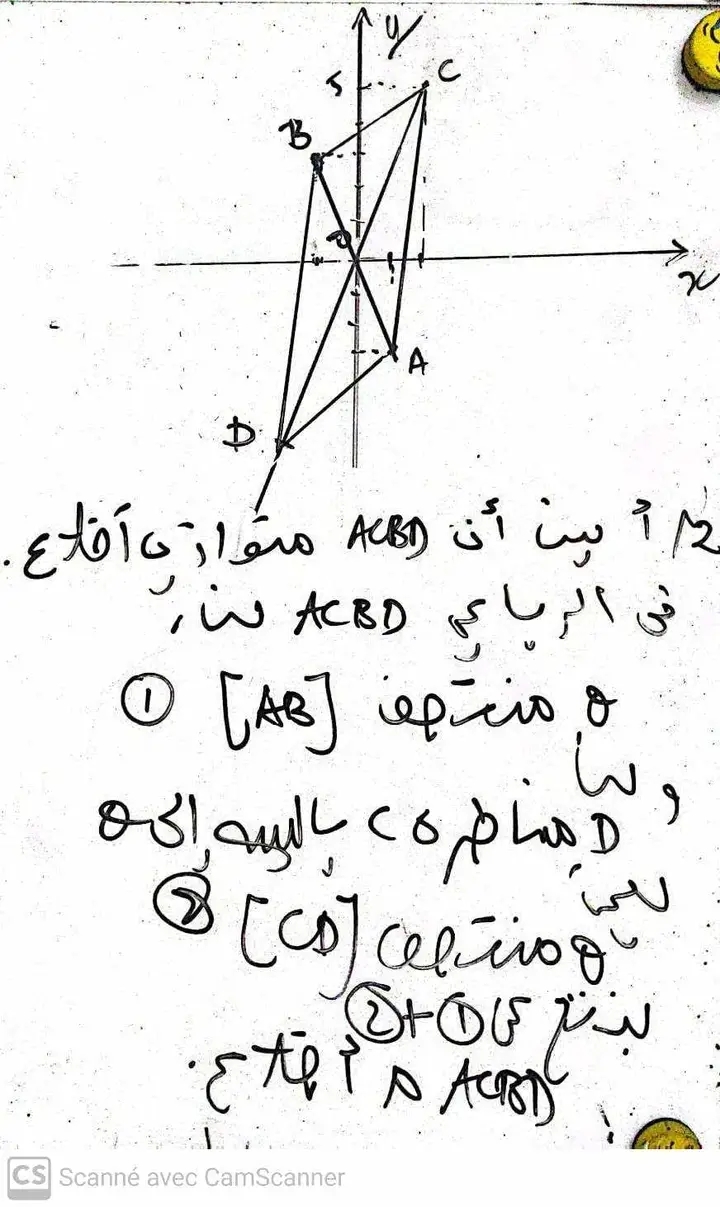 y
5
C
B
O
x
A
D
2/ أ بين أن ACBD متوازي أضلاع.
في الرباعي ACBD لدينا
O منتصف [AB] ①
وبما
D مماثل C بالنسبة إلى O
O منتصف [CD] ②
① + ②
ACBD م أضلاع.
CS Scanné avec CamScanner